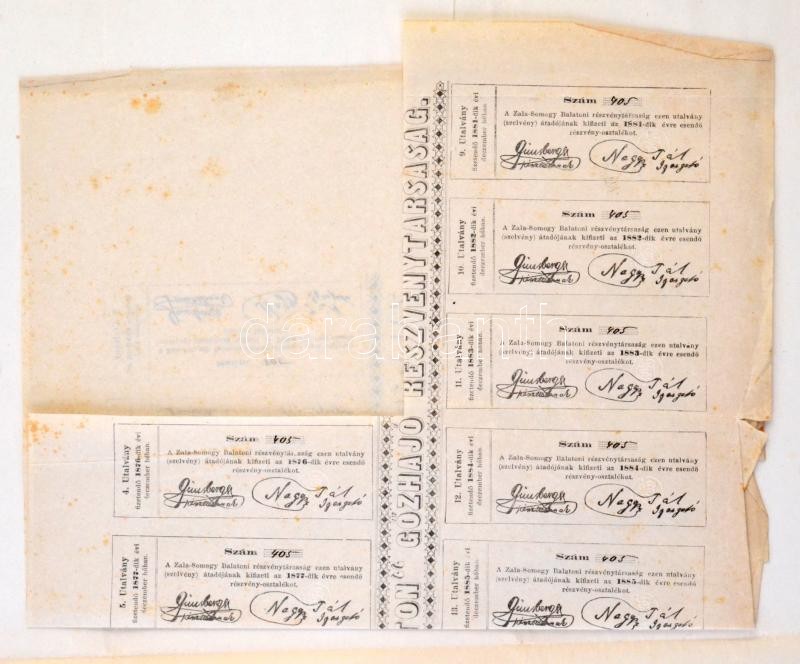 TON“ GŐZHAJÓ RÉSZVÉNYTÁRSASÁG.
4. Utalvány
fizetendő 1876-dik évi
deczember hóban.
Szám 405
A Zala-Somogy Balatoni részvénytársaság ezen utalvány
(szelvény) átadójának kifizeti az 1876-dik évre esendő
részvény-osztalékot.
Nagy Pál
Igazgató
5. Utalvány
fizetendő 1877-dik évi
deczember hóban.
Szám 405
A Zala-Somogy Balatoni részvénytársaság ezen utalvány
(szelvény) átadójának kifizeti az 1877-dik évre esendő
részvény-osztalékot.
Nagy Pál
Igazgató
9. Utalvány
fizetendő 1881-dik évi
deczember hóban.
Szám 405
A Zala-Somogy Balatoni részvénytársaság ezen utalvány
(szelvény) átadójának kifizeti az 1881-dik évre esendő
részvény-osztalékot.
Nagy Pál
Igazgató
10. Utalvány
fizetendő 1882-dik évi
deczember hóban.
Szám 405
A Zala-Somogy Balatoni részvénytársaság ezen utalvány
(szelvény) átadójának kifizeti az 1882-dik évre esendő
részvény-osztalékot.
Nagy Pál
Igazgató
11. Utalvány
fizetendő 1883-dik évi
deczember hóban.
Szám 405
A Zala-Somogy Balatoni részvénytársaság ezen utalvány
(szelvény) átadójának kifizeti az 1883-dik évre esendő
részvény-osztalékot.
Nagy Pál
Igazgató
12. Utalvány
fizetendő 1884-dik évi
deczember hóban.
Szám 405
A Zala-Somogy Balatoni részvénytársaság ezen utalvány
(szelvény) átadójának kifizeti az 1884-dik évre esendő
részvény-osztalékot.
Nagy Pál
Igazgató
13. Utalvány
fizetendő 1885-dik évi
deczember hóban.
Szám 405
A Zala-Somogy Balatoni részvénytársaság ezen utalvány
(szelvény) átadójának kifizeti az 1885-dik évre esendő
részvény-osztalékot.
Nagy Pál
Igazgató
darabanth.com